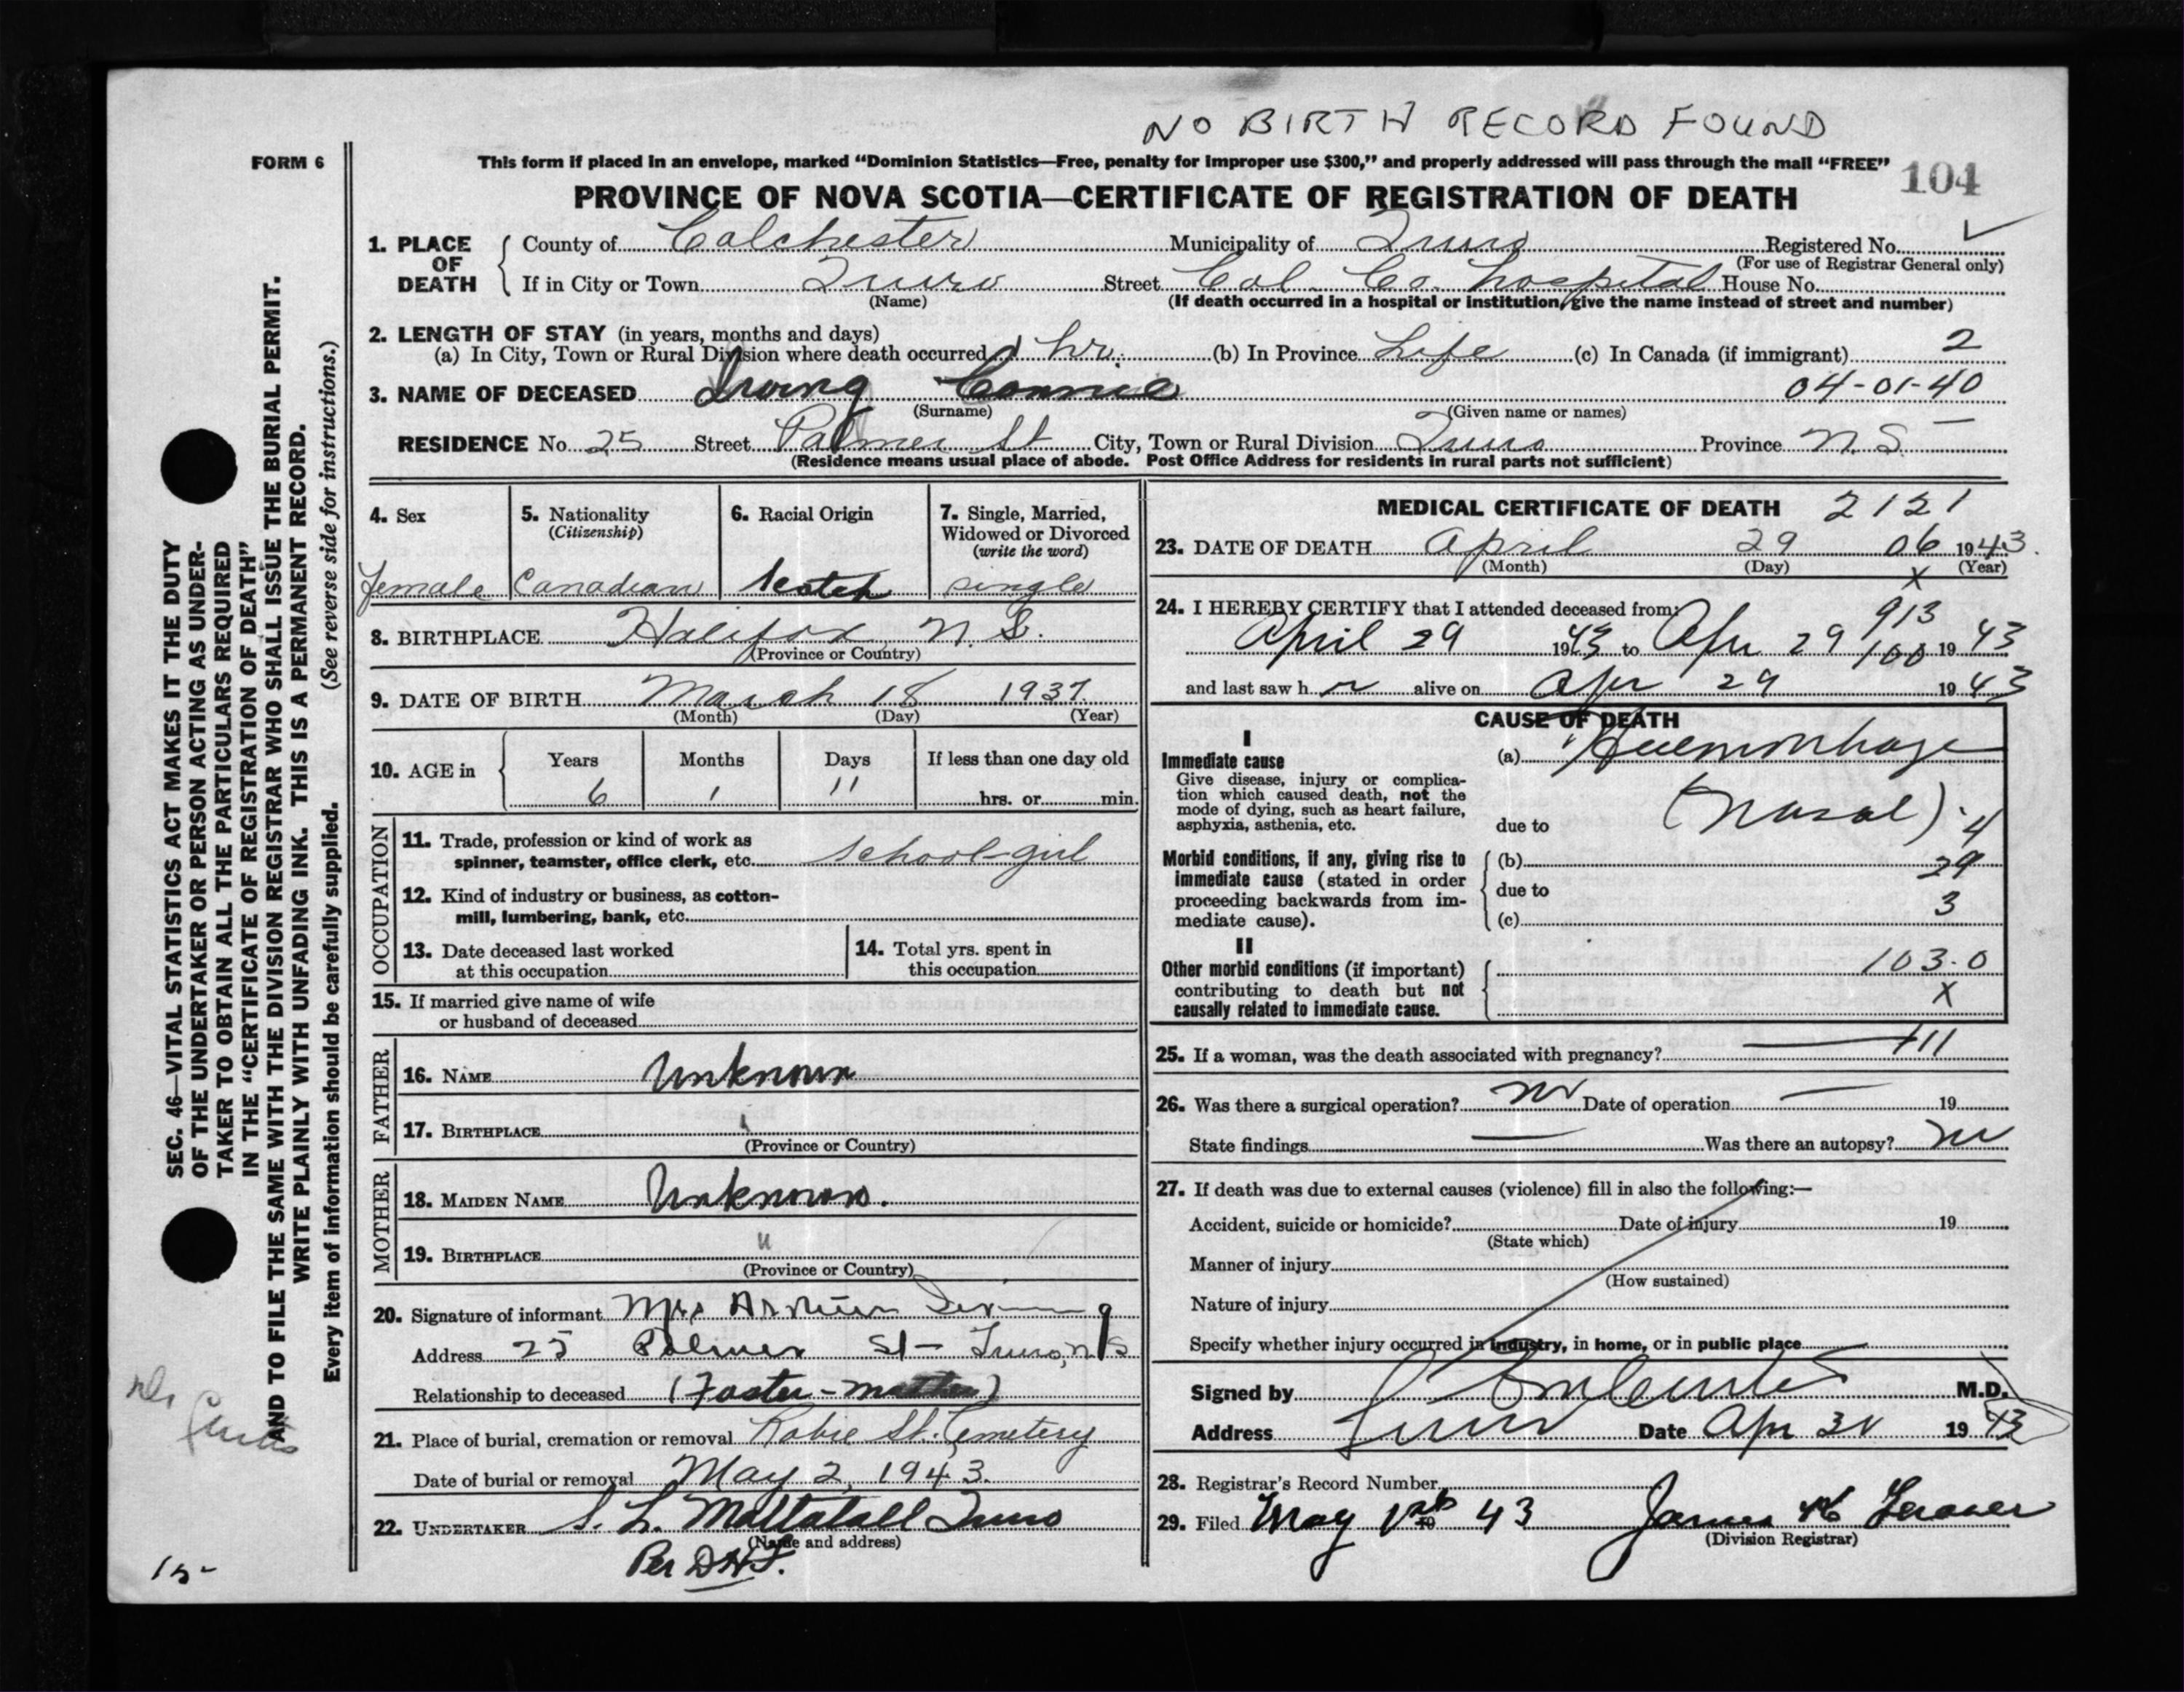 NO BIRTH RECORD FOUND
FORM 6
This form if placed in an envelope, marked "Dominion Statistics—Free, penalty for improper use $300," and properly addressed will pass through the mail "FREE"
104
PROVINCE OF NOVA SCOTIA—CERTIFICATE OF REGISTRATION OF DEATH
1. PLACE OF DEATH County of Colchester Municipality of Truro Registered No.
(For use of Registrar General only)
If in City or Town Truro Street Col. Co. hospital House No.
(Name) (If death occurred in a hospital or institution, give the name instead of street and number)
2. LENGTH OF STAY (in years, months and days)
(a) In City, Town or Rural Division where death occurred 1 hr. (b) In Province Life (c) In Canada (if immigrant) 2
04-01-40
3. NAME OF DECEASED Irving Connie
(Surname) (Given name or names)
RESIDENCE No. 25 Street Palmer St City, Town or Rural Division Truro Province N.S.
(Residence means usual place of abode. Post Office Address for residents in rural parts not sufficient)
4. Sex 5. Nationality 6. Racial Origin 7. Single, Married,
(Citizenship) Widowed or Divorced
(write the word)
female Canadian Scotch single
8. BIRTHPLACE Halifax N.S.
(Province or Country)
9. DATE OF BIRTH March 18 1937.
(Month) (Day) (Year)
10. AGE in Years Months Days If less than one day old
6 1 11 hrs. or min.
OCCUPATION
11. Trade, profession or kind of work as
spinner, teamster, office clerk, etc. school-girl
12. Kind of industry or business, as cotton-
mill, lumbering, bank, etc.
13. Date deceased last worked 14. Total yrs. spent in
at this occupation this occupation
15. If married give name of wife
or husband of deceased
FATHER
16. NAME Unknown
17. BIRTHPLACE
(Province or Country)
MOTHER
18. MAIDEN NAME Unknown.
19. BIRTHPLACE "
(Province or Country)
20. Signature of informant Mrs Arthur Irving
Address 25 Palmer St- Truro, N S
Relationship to deceased (Foster-mother)
21. Place of burial, cremation or removal Robie St. Cemetery
Date of burial or removal May 2, 1943.
22. UNDERTAKER S. L. Mattatall Truro
(Name and address)
Per D.H.F.
MEDICAL CERTIFICATE OF DEATH 2121
23. DATE OF DEATH April 29 06 1943.
(Month) (Day) (Year)
x
24. I HEREBY CERTIFY that I attended deceased from: 913
April 29 1943 to Apr 29 100 1943
and last saw h er alive on Apr 29 1943
CAUSE OF DEATH
I
Immediate cause (a) Haemorrhage
Give disease, injury or complica-
tion which caused death, not the
mode of dying, such as heart failure,
asphyxia, asthenia, etc. due to (nasal) 4
Morbid conditions, if any, giving rise to (b) 29
immediate cause (stated in order due to
proceeding backwards from im- 3
mediate cause). (c)
II
Other morbid conditions (if important) 103-0
contributing to death but not X
causally related to immediate cause.
25. If a woman, was the death associated with pregnancy? — 111
26. Was there a surgical operation? no Date of operation — 19
State findings — Was there an autopsy? no
27. If death was due to external causes (violence) fill in also the following:—
Accident, suicide or homicide? Date of injury 19
(State which)
Manner of injury
(How sustained)
Nature of injury
Specify whether injury occurred in industry, in home, or in public place
Signed by M.D.
Address Truro Date Apr 30 1943
28. Registrar's Record Number
29. Filed May 1st 19 43 James
(Division Registrar)
SEC. 46—VITAL STATISTICS ACT MAKES IT THE DUTY
OF THE UNDERTAKER OR PERSON ACTING AS UNDER-
TAKER TO OBTAIN ALL THE PARTICULARS REQUIRED
IN THE "CERTIFICATE OF REGISTRATION OF DEATH"
AND TO FILE THE SAME WITH THE DIVISION REGISTRAR WHO SHALL ISSUE THE BURIAL PERMIT.
WRITE PLAINLY WITH UNFADING INK. THIS IS A PERMANENT RECORD.
Every item of information should be carefully supplied. (See reverse side for instructions.)
15-